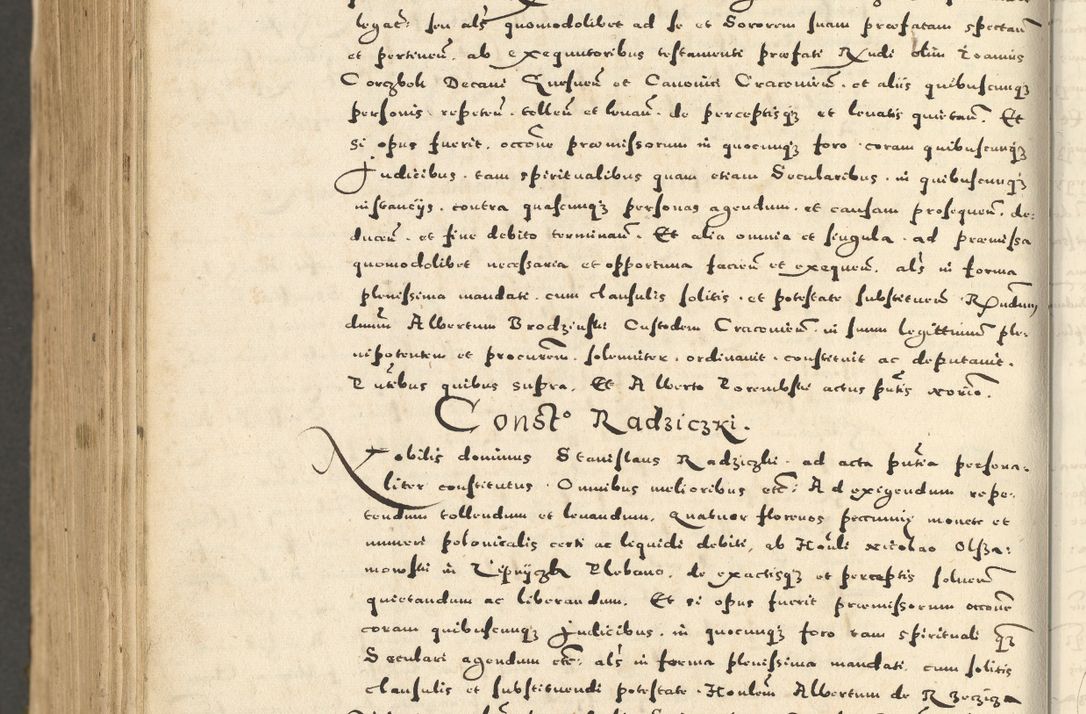 legat: seu als quomodolibet ad se et Sororem suam præfatam spectan
et pertinen. ab exequutoribus testamenti præfati Rndi olim Ioannis
Corczbok Decani Qursnen et Canonici Cracouien. et aliis quibuscunqz
personis. repeten. tollen et leuan. de perceptisqz et leuatis quietan. Et
si opus fuerit. occone præmissorum in quocunqz foro. coram quibuscunqz
Judicibus. tam spiritualibus quam etiam Secularibus. in quibuscunqz
instancijs. contra quascunqz personas agendum. et causam prosequen. de:
ducen. et fine debito terminan. Et alia omnia et singula. ad præmissa
quomodolibet necessaria et opportuna facien et exequen. als in forma
plenissima mandati. cum clausulis solitis. et potestate substituen. Rndum
dnum Albertum Brodzinski Custodem Cracouien. in suum legittimum ple:
nipotentem et procurem. solemniter. ordinauit. constituit ac deputauit.
Pntibus quibus supra. Et Alberto Porembski actus pntis norio.
Const° Radziczki.
Nobilis dominus Stanislaus Radziczki. ad acta pntia persona:
liter constitutus. Omnibus melioribus etc: Ad exigendum repe:
tendum tollendum et leuandum. Quatuor florenos pecuniæ monete et
numeri polonicalis certi ac liquidi debiti, ab Honli Nicolao Olsza:
mowski in Lipnyczka Plebano. de exactisqz et perceptis soluen
quietandum ac liberandum. Et si opus fuerit præmissorum occone
coram quibuscunqz Judicibus. in quocunqz foro tam spirituali qz
Seculari agendum etc: als in forma plenissima mandati. cum solitis
clausulis et substituendi potestate. Honlem Albertum de Rzeczicza